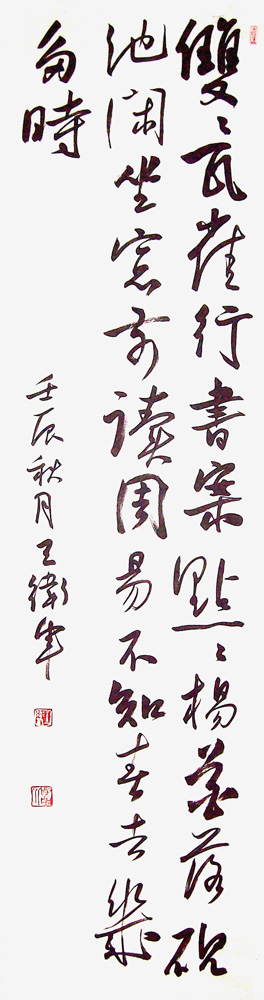 雙〻瓦雀行書案點〻楊花落硯
池閑坐窓前讀周易不知春去幾
多時
壬辰秋月王衛軍